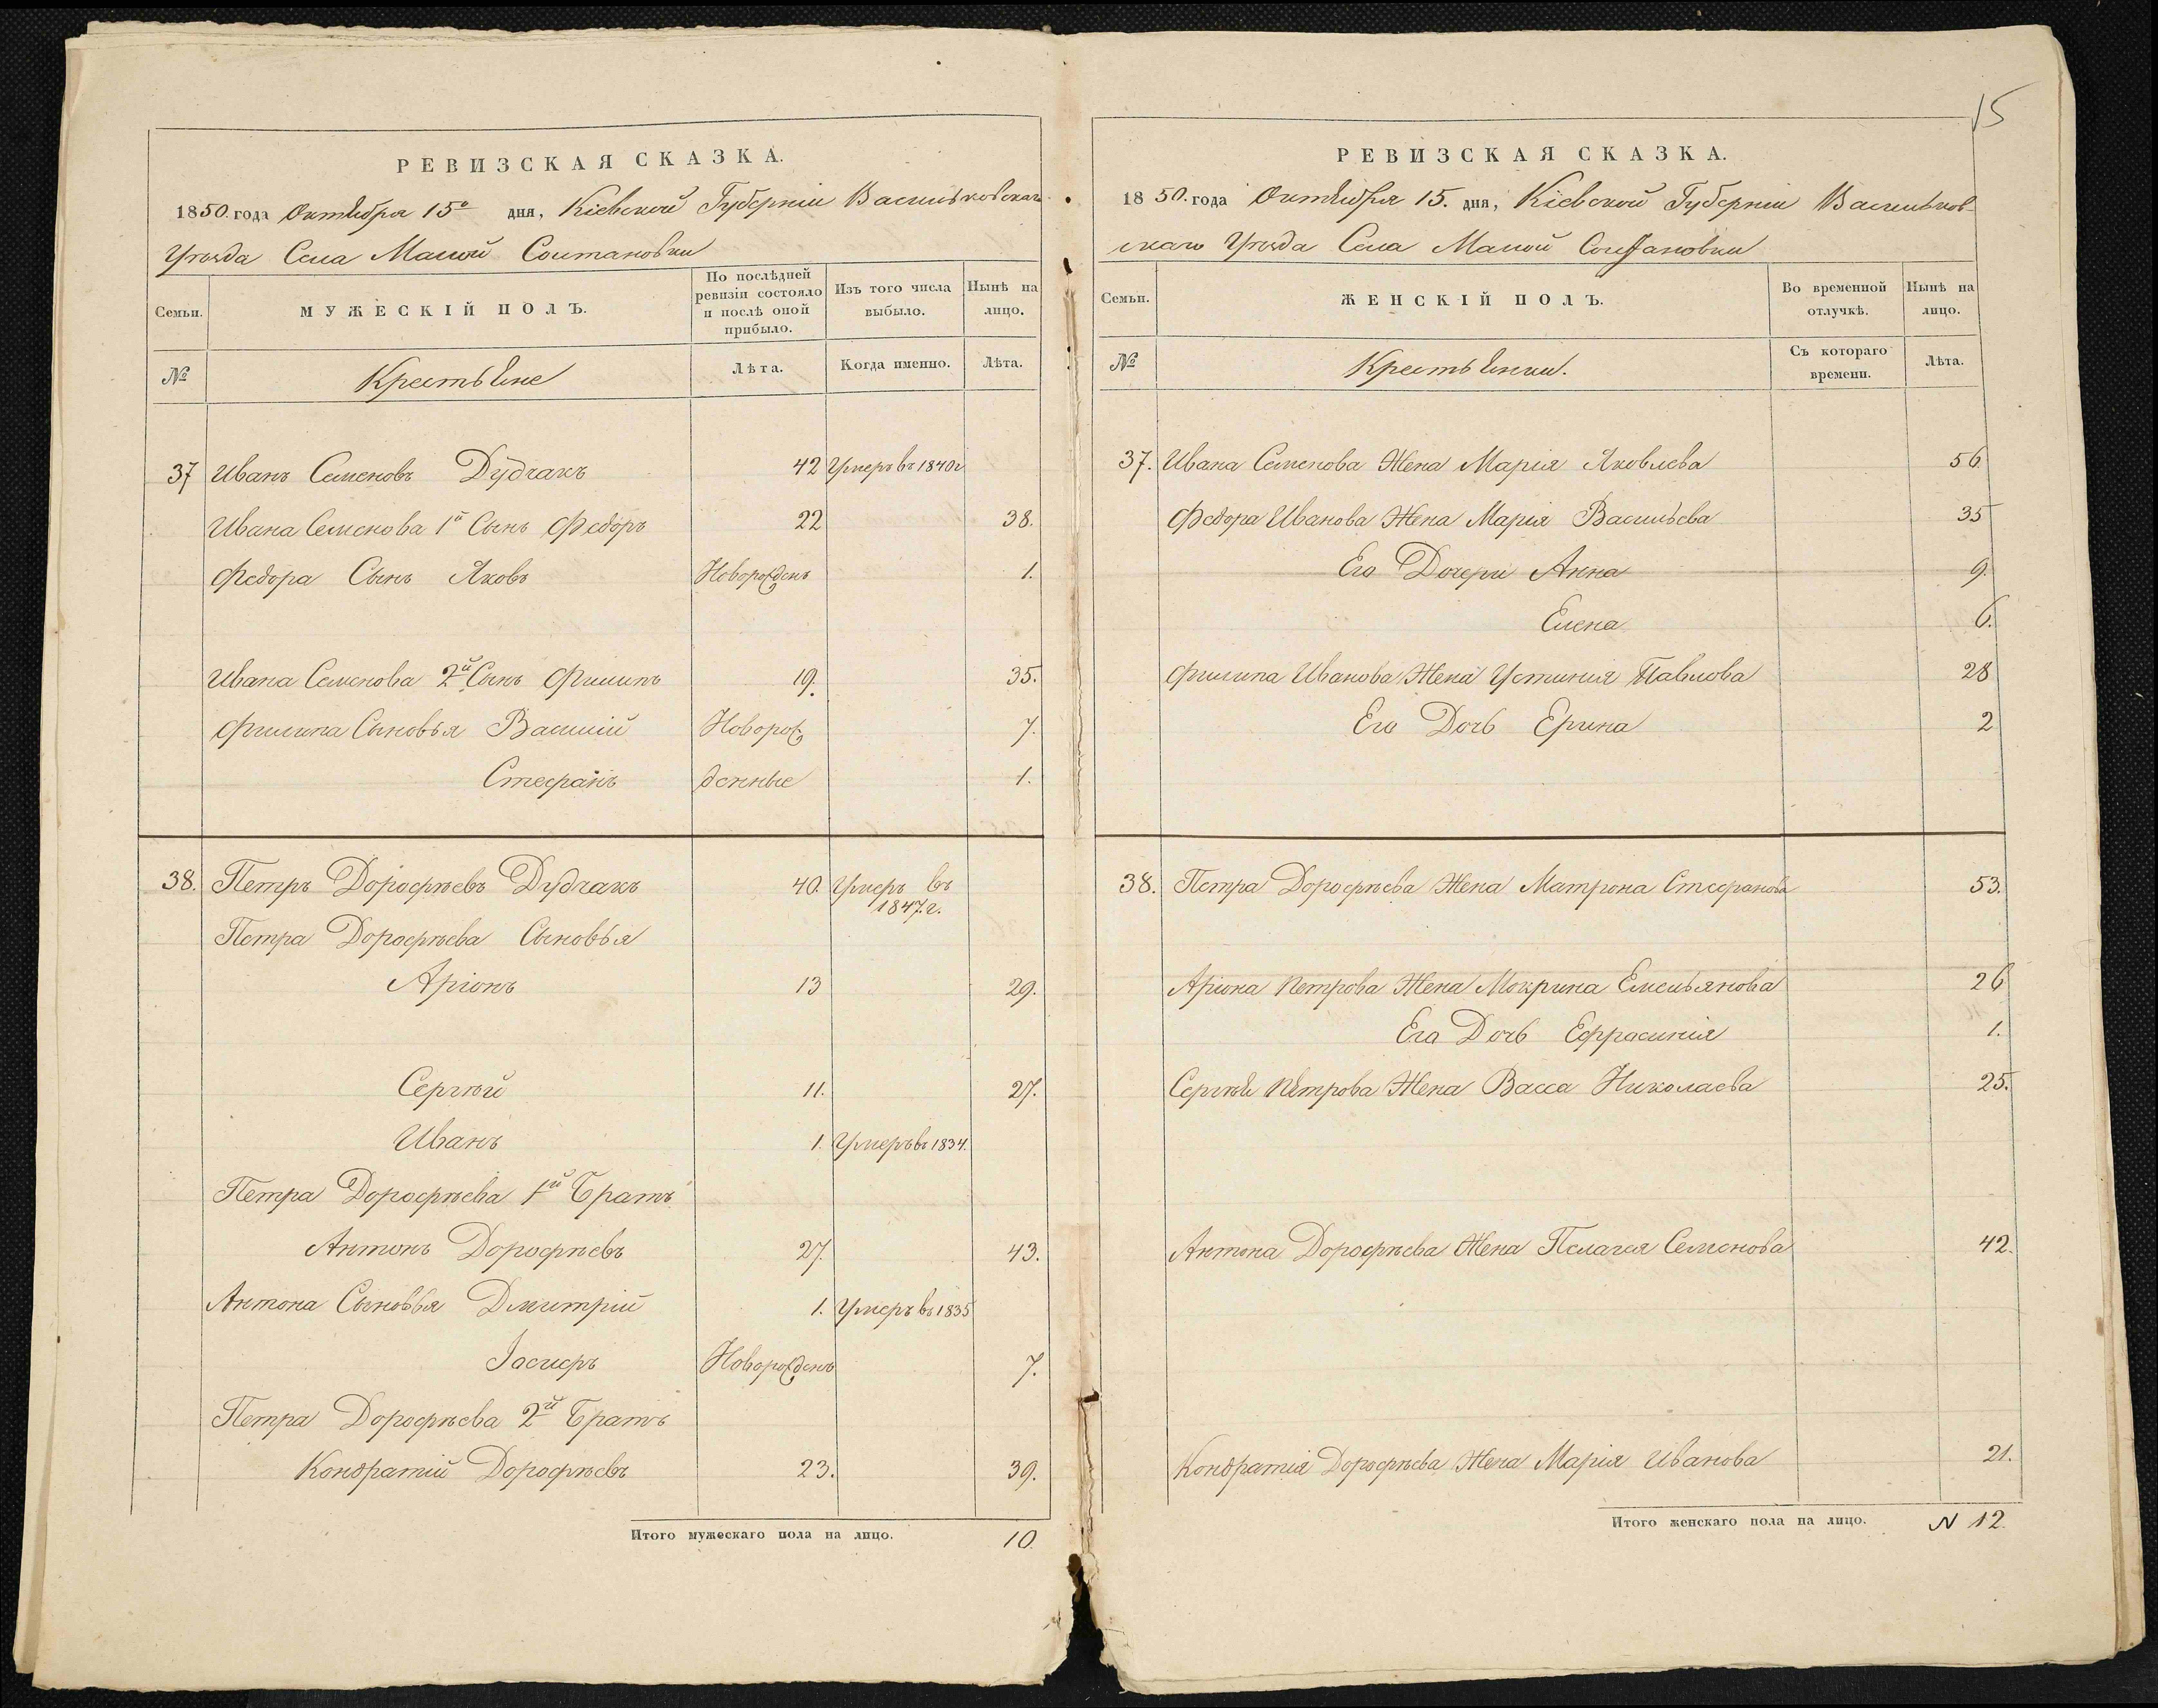 15
РЕВИЗСКАЯ СКАЗКА.
1850. года Октября 15го дня, Кіевской Губерніи Васильковскаго
Уѣзда Села Малой Солтановки
Семьи.
МУЖЕСКІЙ ПОЛЪ.
По послѣдней ревизіи состояло и послѣ оной прибыло.
Изъ того числа выбыло.
Нынѣ на лицо.
№
Крестьяне
Лѣта.
Когда именно.
Лѣта.
37 Иванъ Семеновъ Дудчакъ 42 Умеръ въ 1840г
Ивана Семенова 1й Сынъ Федоръ 22 38.
Федора Сынъ Яковъ Новорожденъ 1.
Ивана Семенова 2й Сынъ Филипъ 19. 35.
Филипа Сыновья Василій Новорож 7.
Стефанъ денные 1.
38. Петръ Дорофѣевъ Дудчакъ 40. Умеръ въ
1847.г.
Петра Дорофѣева Сыновья
Аріонъ 13 29.
Сергѣй 11. 27.
Иванъ 1. Умеръ въ 1834.
Петра Дорофѣева 1й Братъ
Антонъ Дорофѣевъ 27. 43.
Антона Сыновья Дмитрій 1. Умеръ въ 1835
Іосифъ Новорожденъ 7.
Петра Дорофѣева 2й Братъ
Кондратій Дорофѣевъ 23. 39.
Итого мужескаго пола на лицо. 10.
РЕВИЗСКАЯ СКАЗКА.
1850. года Октября 15. дня, Кіевской Губерніи Васильков-
скаго Уѣзда Села Малой Солтановки
Семьи.
ЖЕНСКІЙ ПОЛЪ.
Во временной отлучкѣ.
Нынѣ на лицо.
№
Крестьянки.
Съ котораго времени.
Лѣта.
37. Ивана Семенова Жена Марія Яковлева 56.
Федора Иванова Жена Марія Васильева 35
Его Дочери Анна 9.
Елена 6.
Филипа Иванова Жена Устинія Павлова 28
Его Дочь Ерина 2
38. Петра Дорофѣева Жена Матрона Стефанова 53.
Аріона Петрова Жена Мокрина Емельянова 26
Его Дочь Ефросинія 1.
Сергѣя Петрова Жена Васса Николаева 25.
Антона Дорофѣева Жена Пелагея Семенова 42.
Кондратія Дорофѣева Жена Марія Иванова 21.
Итого женскаго пола на лицо. N 12.